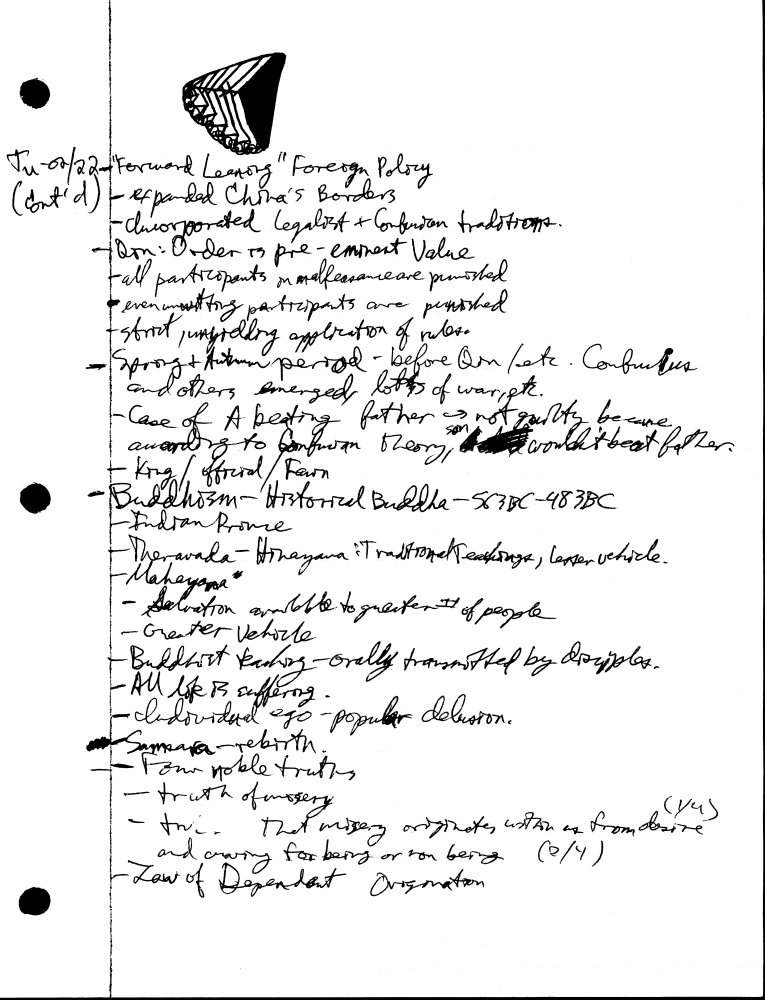 Tu-02/22 - "Forward Leaning" Foreign Policy
(Cont'd) - expanded China's Borders
- Incorporated Legalist + Confucian traditions.
- Qin: Order is pre-eminent Value
- all participants in malfeasance are punished
- even unwitting participants are punished
- strict, unyielding application of rules.
- Spring + Autumn period - before Qin/etc. Confucius
and others emerged, lots of war, etc.
- Case of A beating father → not guilty because
according to Confucian theory, son wouldn't beat father.
- King / Official /
- Buddhism - Historical Buddha - 563BC-483BC
- Indian Prince
- Theravada - Hinayana: Traditional Teachings, lesser vehicle.
- Mahayana
- Salvation available to greater # of people
- Greater Vehicle
- Buddhist teaching - orally transmitted by disciples.
- All life is suffering.
- Individual ego - popular delusion.
- Samsara - rebirth.
- Four noble truths
- truth of misery (1/4)
- tru... That misery originates within us from desire
and craving for being or non being (2/4)
- Law of Dependent Origination